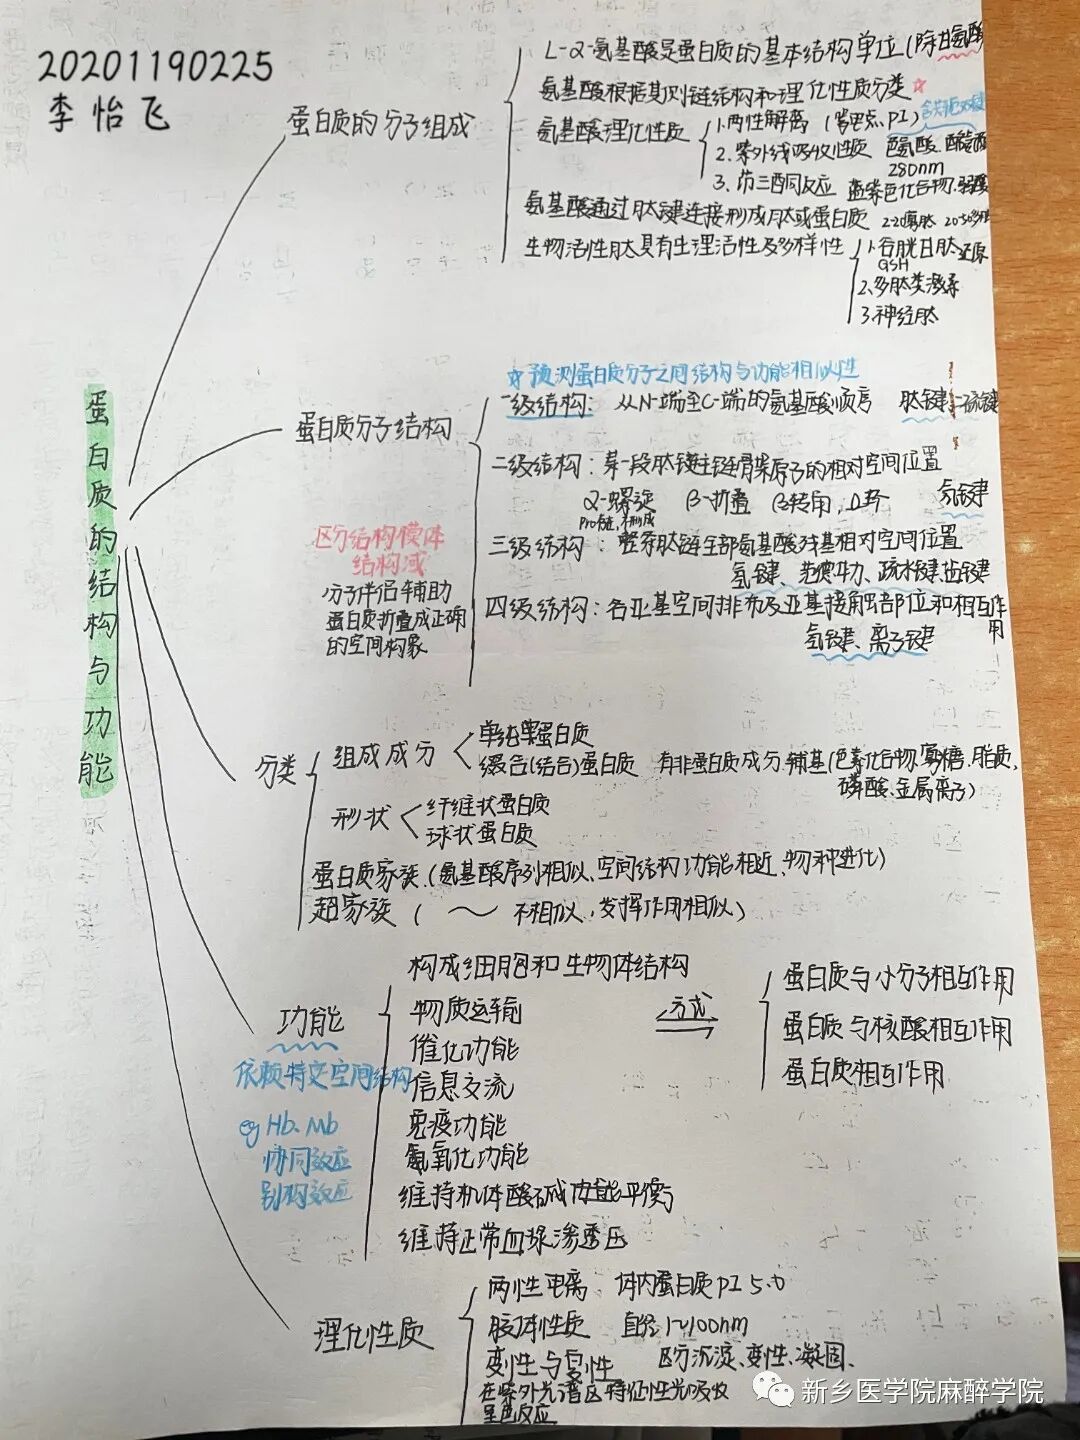 20201190225
李怡飞
蛋白质的结构与功能
蛋白质的分子组成
L-α-氨基酸是蛋白质的基本结构单位(除甘氨酸
氨基酸根据其侧链结构和理化性质分类☆
氨基酸理化性质
1.两性解离 (等电点PI)
含共轭双键
2.紫外线吸收性质 色氨酸、酪氨酸
280nm
3.茚三酮反应 蓝紫色化合物
氨基酸通过肽键连接形成肽或蛋白质
生物活性肽具有生理活性及多样性
1.谷胱甘肽 还原
GSH
2.多肽类激素
3.神经肽
蛋白质分子结构
☆预测蛋白质分子之间结构与功能相似性
一级结构: 从N-端至C-端的氨基酸顺序 肽键 二硫键
二级结构: 某一段肽链主链骨架原子的相对空间位置
α-螺旋 β-折叠 β转角,Ω环 氢键
三级结构: 整条肽链全部氨基酸残基相对空间位置
氢键、范德华力、疏水键、盐键
四级结构: 各亚基空间排布及亚基接触部位和相互作用
氢键、离子键
区分结构模体
结构域
分子伴侣辅助
蛋白质折叠成正确
的空间构象
分类
组成成分
单纯蛋白质
缀合(结合)蛋白质 有非蛋白质成分.辅基(色素化合物.寡糖.脂质.
磷酸.金属离子)
形状
纤维状蛋白质
球状蛋白质
蛋白质家族.(氨基酸序列相似、空间结构功能相近、物种进化)
超家族 ( ～ 不相似,发挥作用相似)
功能
依赖特定空间结构
eg Hb、Mb
协同效应
别构效应
构成细胞和生物体结构
物质运输
催化功能
信息交流
免疫功能
氧化功能
维持机体酸碱平衡
维持正常血浆渗透压
方式
蛋白质与小分子相互作用
蛋白质与核酸相互作用
蛋白质相互作用
理化性质
两性电离 体内蛋白质PI 5.0
胶体性质 直径1~100nm
变性与复性 区分沉淀、变性、凝固、
在紫外光谱区特征性光吸收
呈色反应
新乡医学院麻醉学院